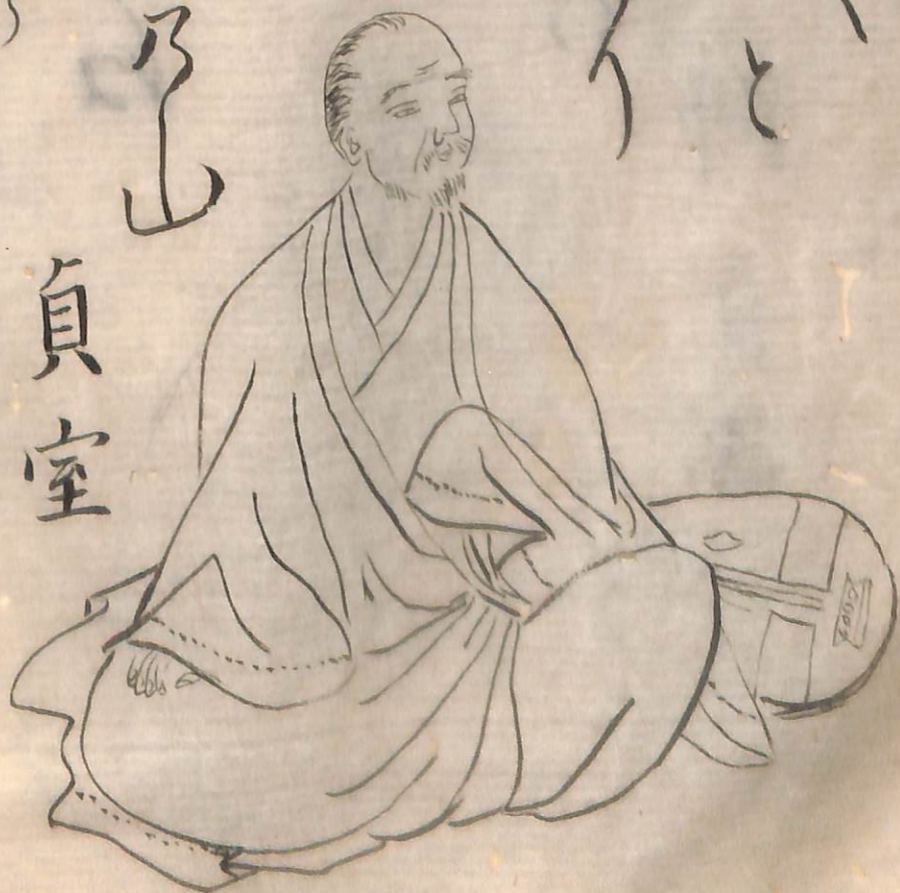 と
り
乃山
貞室